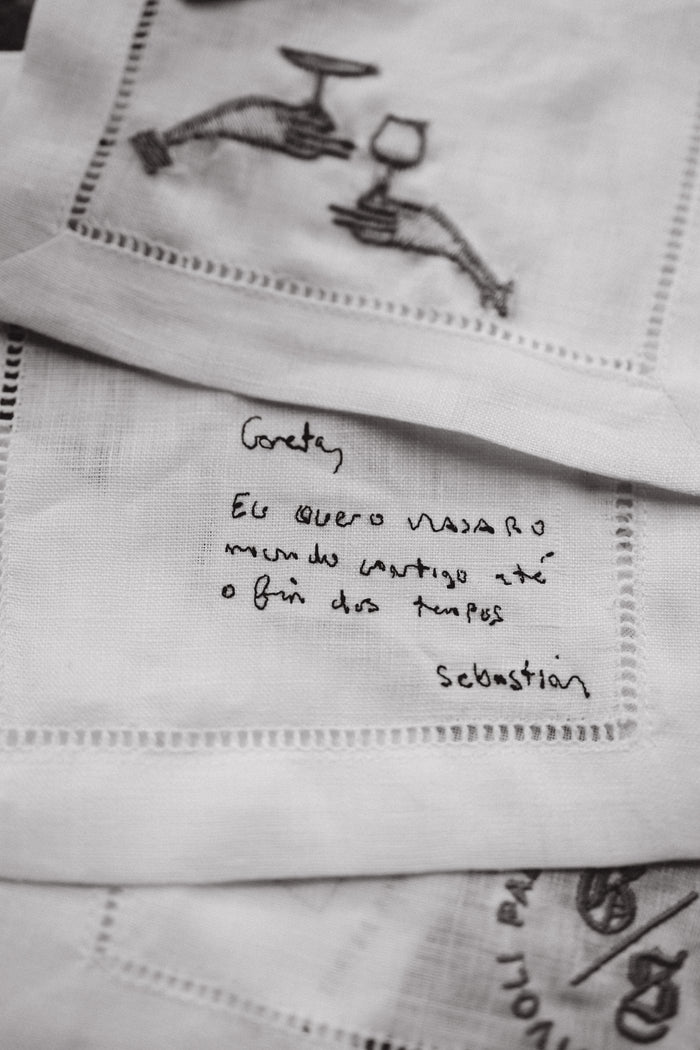 Goreta,
Eu quero viajar o
mundo contigo até
o fim dos tempos
Sebastián
OLI PA